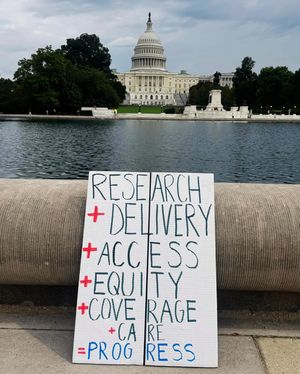 RESEARCH
+ DELIVERY
+ ACCESS
+ EQUITY
+ COVERAGE
+ CARE
= PROGRESS